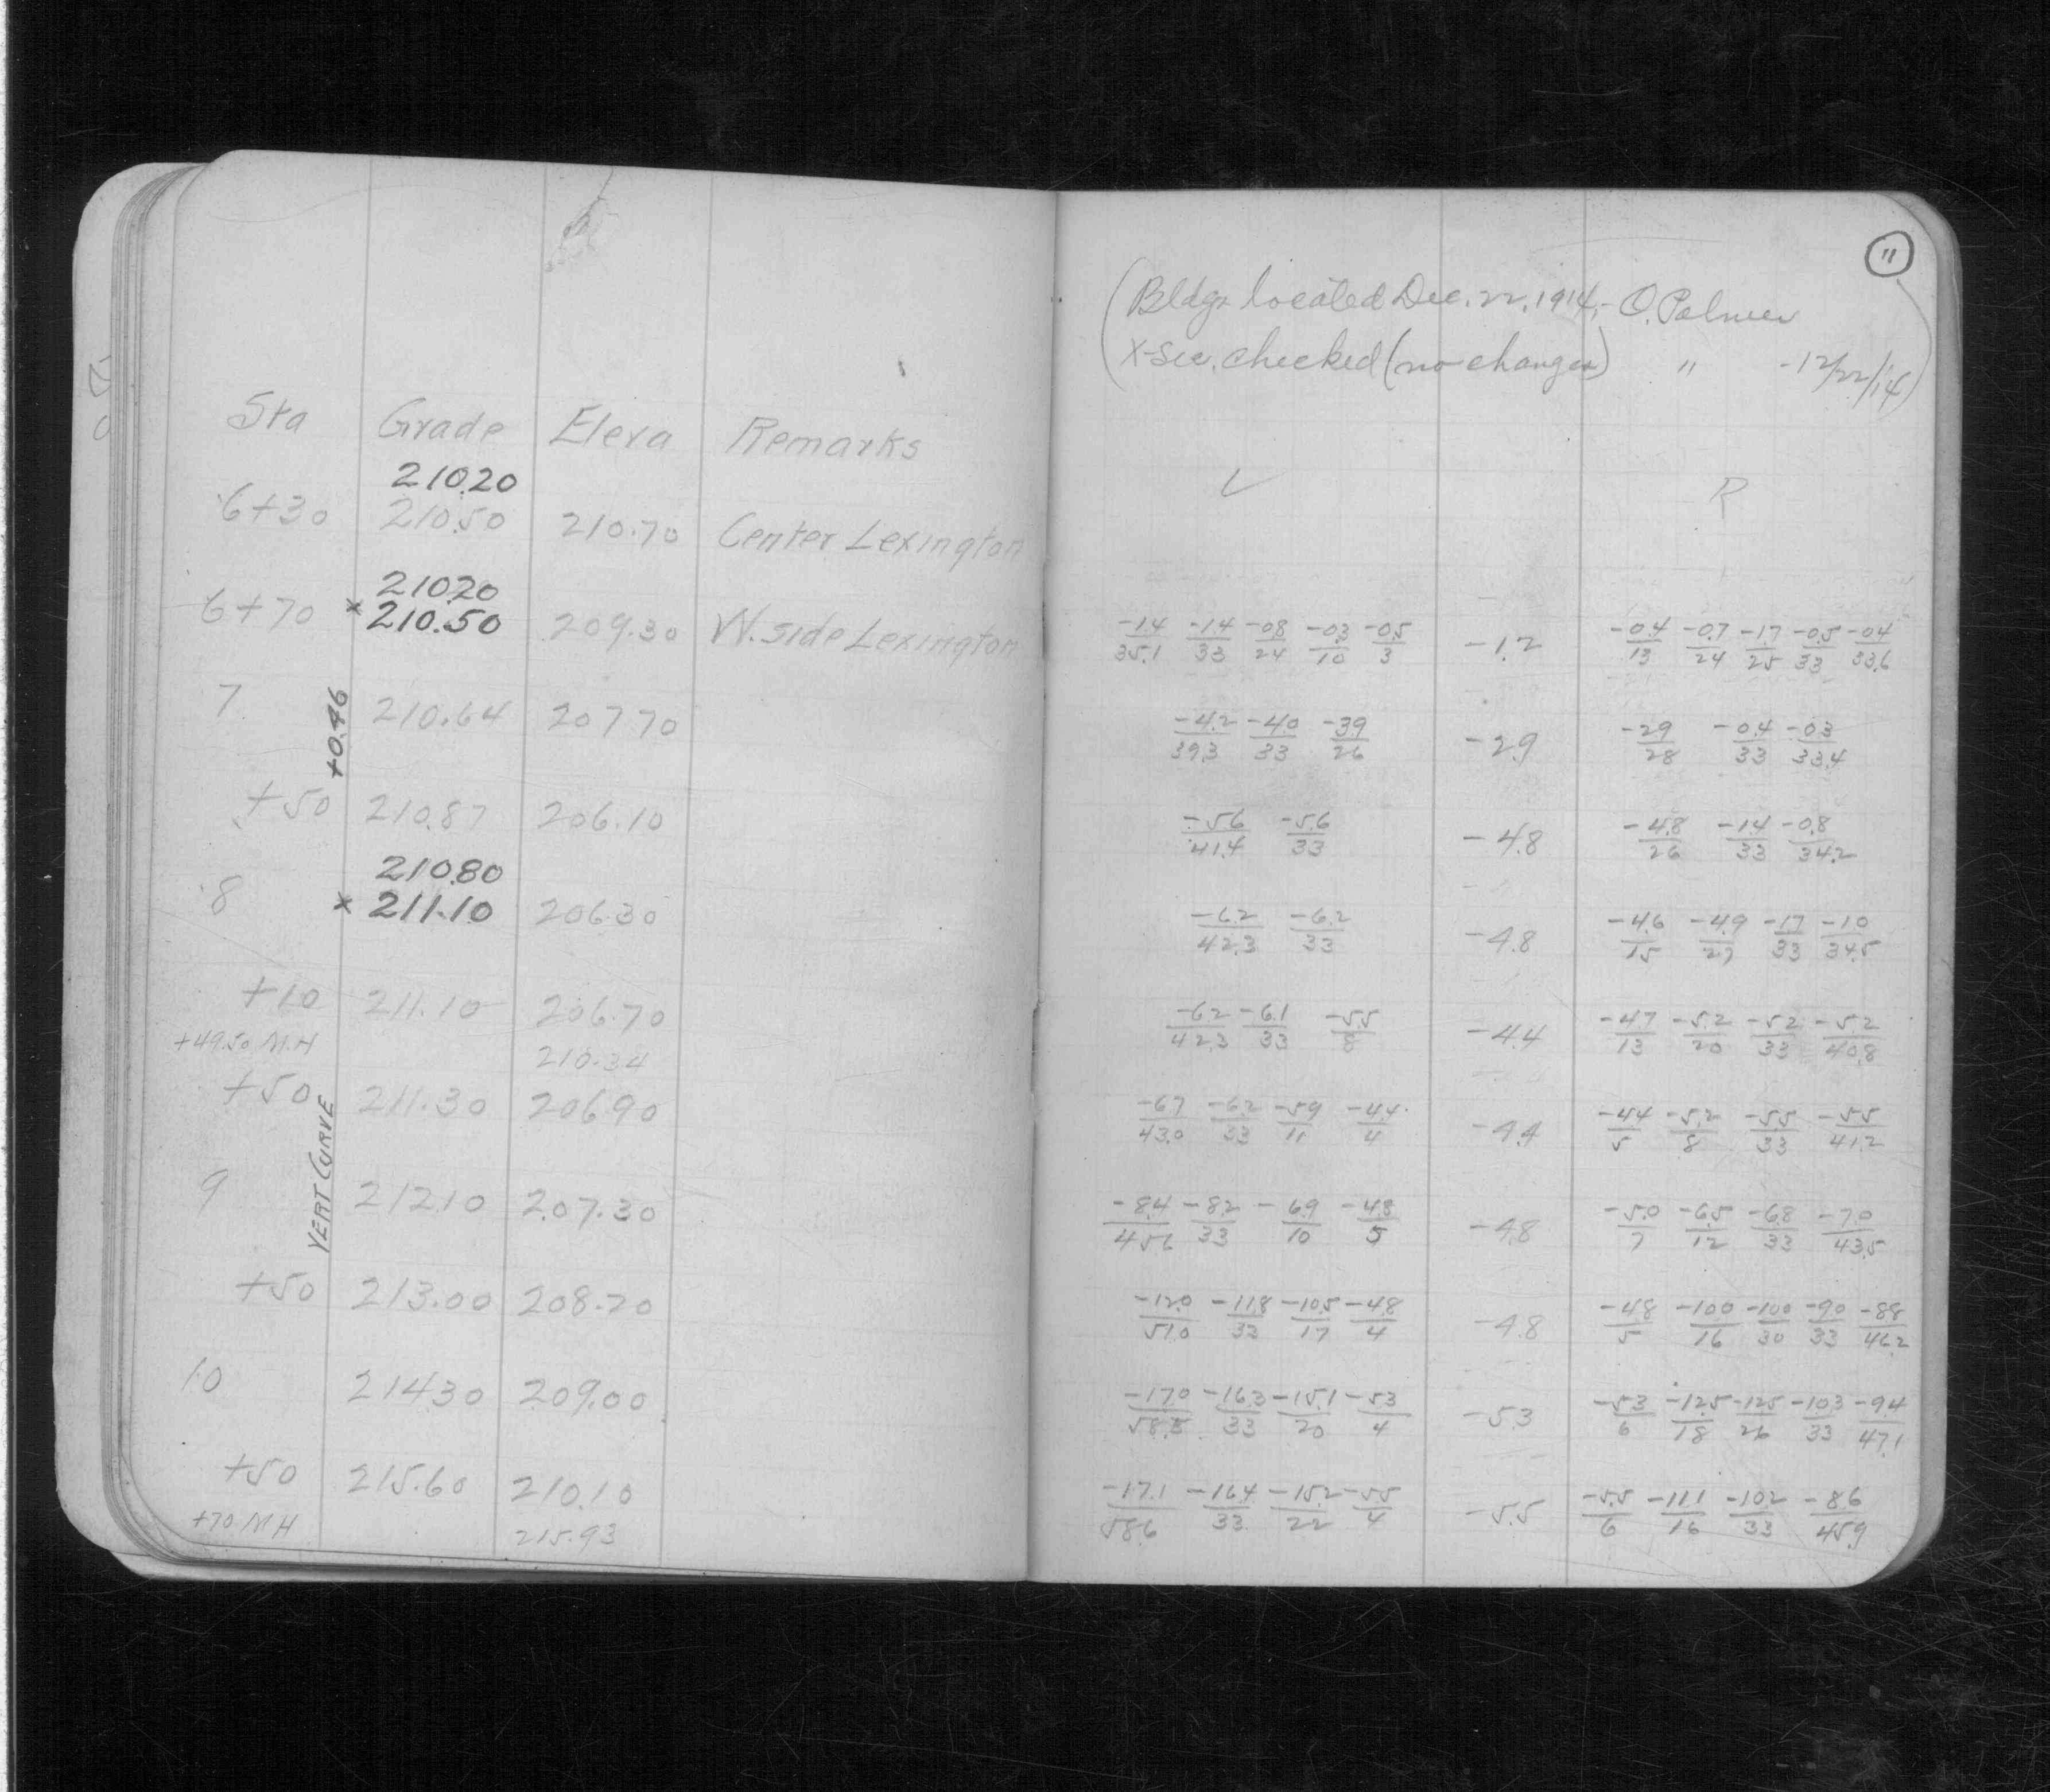 Sta Grade Eleva Remarks
210.20
6+30 210.50 210.70 Center Lexington
210.20
6+70 x 210.50 209.30 W. side Lexington
7 210.64 207.70
+0.46
+50 210.87 206.10
210.80
8 x 211.10 206.30
+10 211.10 206.70
+49.50 M.H 210.34
+50 211.30 206.90
VERT CURVE
9 212.10 207.30
+50 213.00 208.20
10 214.30 209.00
+50 215.60 210.10
+70 MH 215.93
11
(Bldgs located Dec. 22. 1914, - O. Palmer
X-Sec. checked (no changes) " - 12/22/14)
L R
-1.4/35.1 -1.4/33 -0.8/24 -0.3/10 -0.5/3 -1.2 -0.4/13 -0.7/24 -1.7/25 -0.5/33 -0.4/33.6
-4.2/39.3 -4.0/33 -3.9/26 -2.9 -2.9/28 -0.4/33 -0.3/33.4
-5.6/41.4 -5.6/33 -4.8 -4.8/26 -1.4/33 -0.8/34.2
-6.2/42.3 -6.2/33 -4.8 -4.6/15 -4.9/27 -1.7/33 -1.0/34.5
-6.2/42.3 -6.1/33 -5.5/8 -4.4 -4.7/13 -5.2/20 -5.2/33 -5.2/40.8
-6.7/43.0 -6.2/33 -5.9/11 -4.4/4 -4.4 -4.4/5 -5.2/8 -5.5/33 -5.5/41.2
-8.4/45.6 -8.2/33 -6.9/10 -4.8/5 -4.8 -5.0/7 -6.5/12 -6.8/33 -7.0/43.5
-12.0/51.0 -11.8/33 -10.5/17 -4.8/4 -4.8 -4.8/5 -10.0/16 -10.0/30 -9.0/33 -8.8/46.2
-17.0/58.5 -16.3/33 -15.1/20 -5.3/4 -5.3 -5.3/6 -12.5/18 -12.5/26 -10.3/33 -9.4/47.1
-17.1/58.6 -16.4/33 -15.2/22 -5.5/4 -5.5 -5.5/6 -11.1/16 -10.2/33 -8.6/45.9